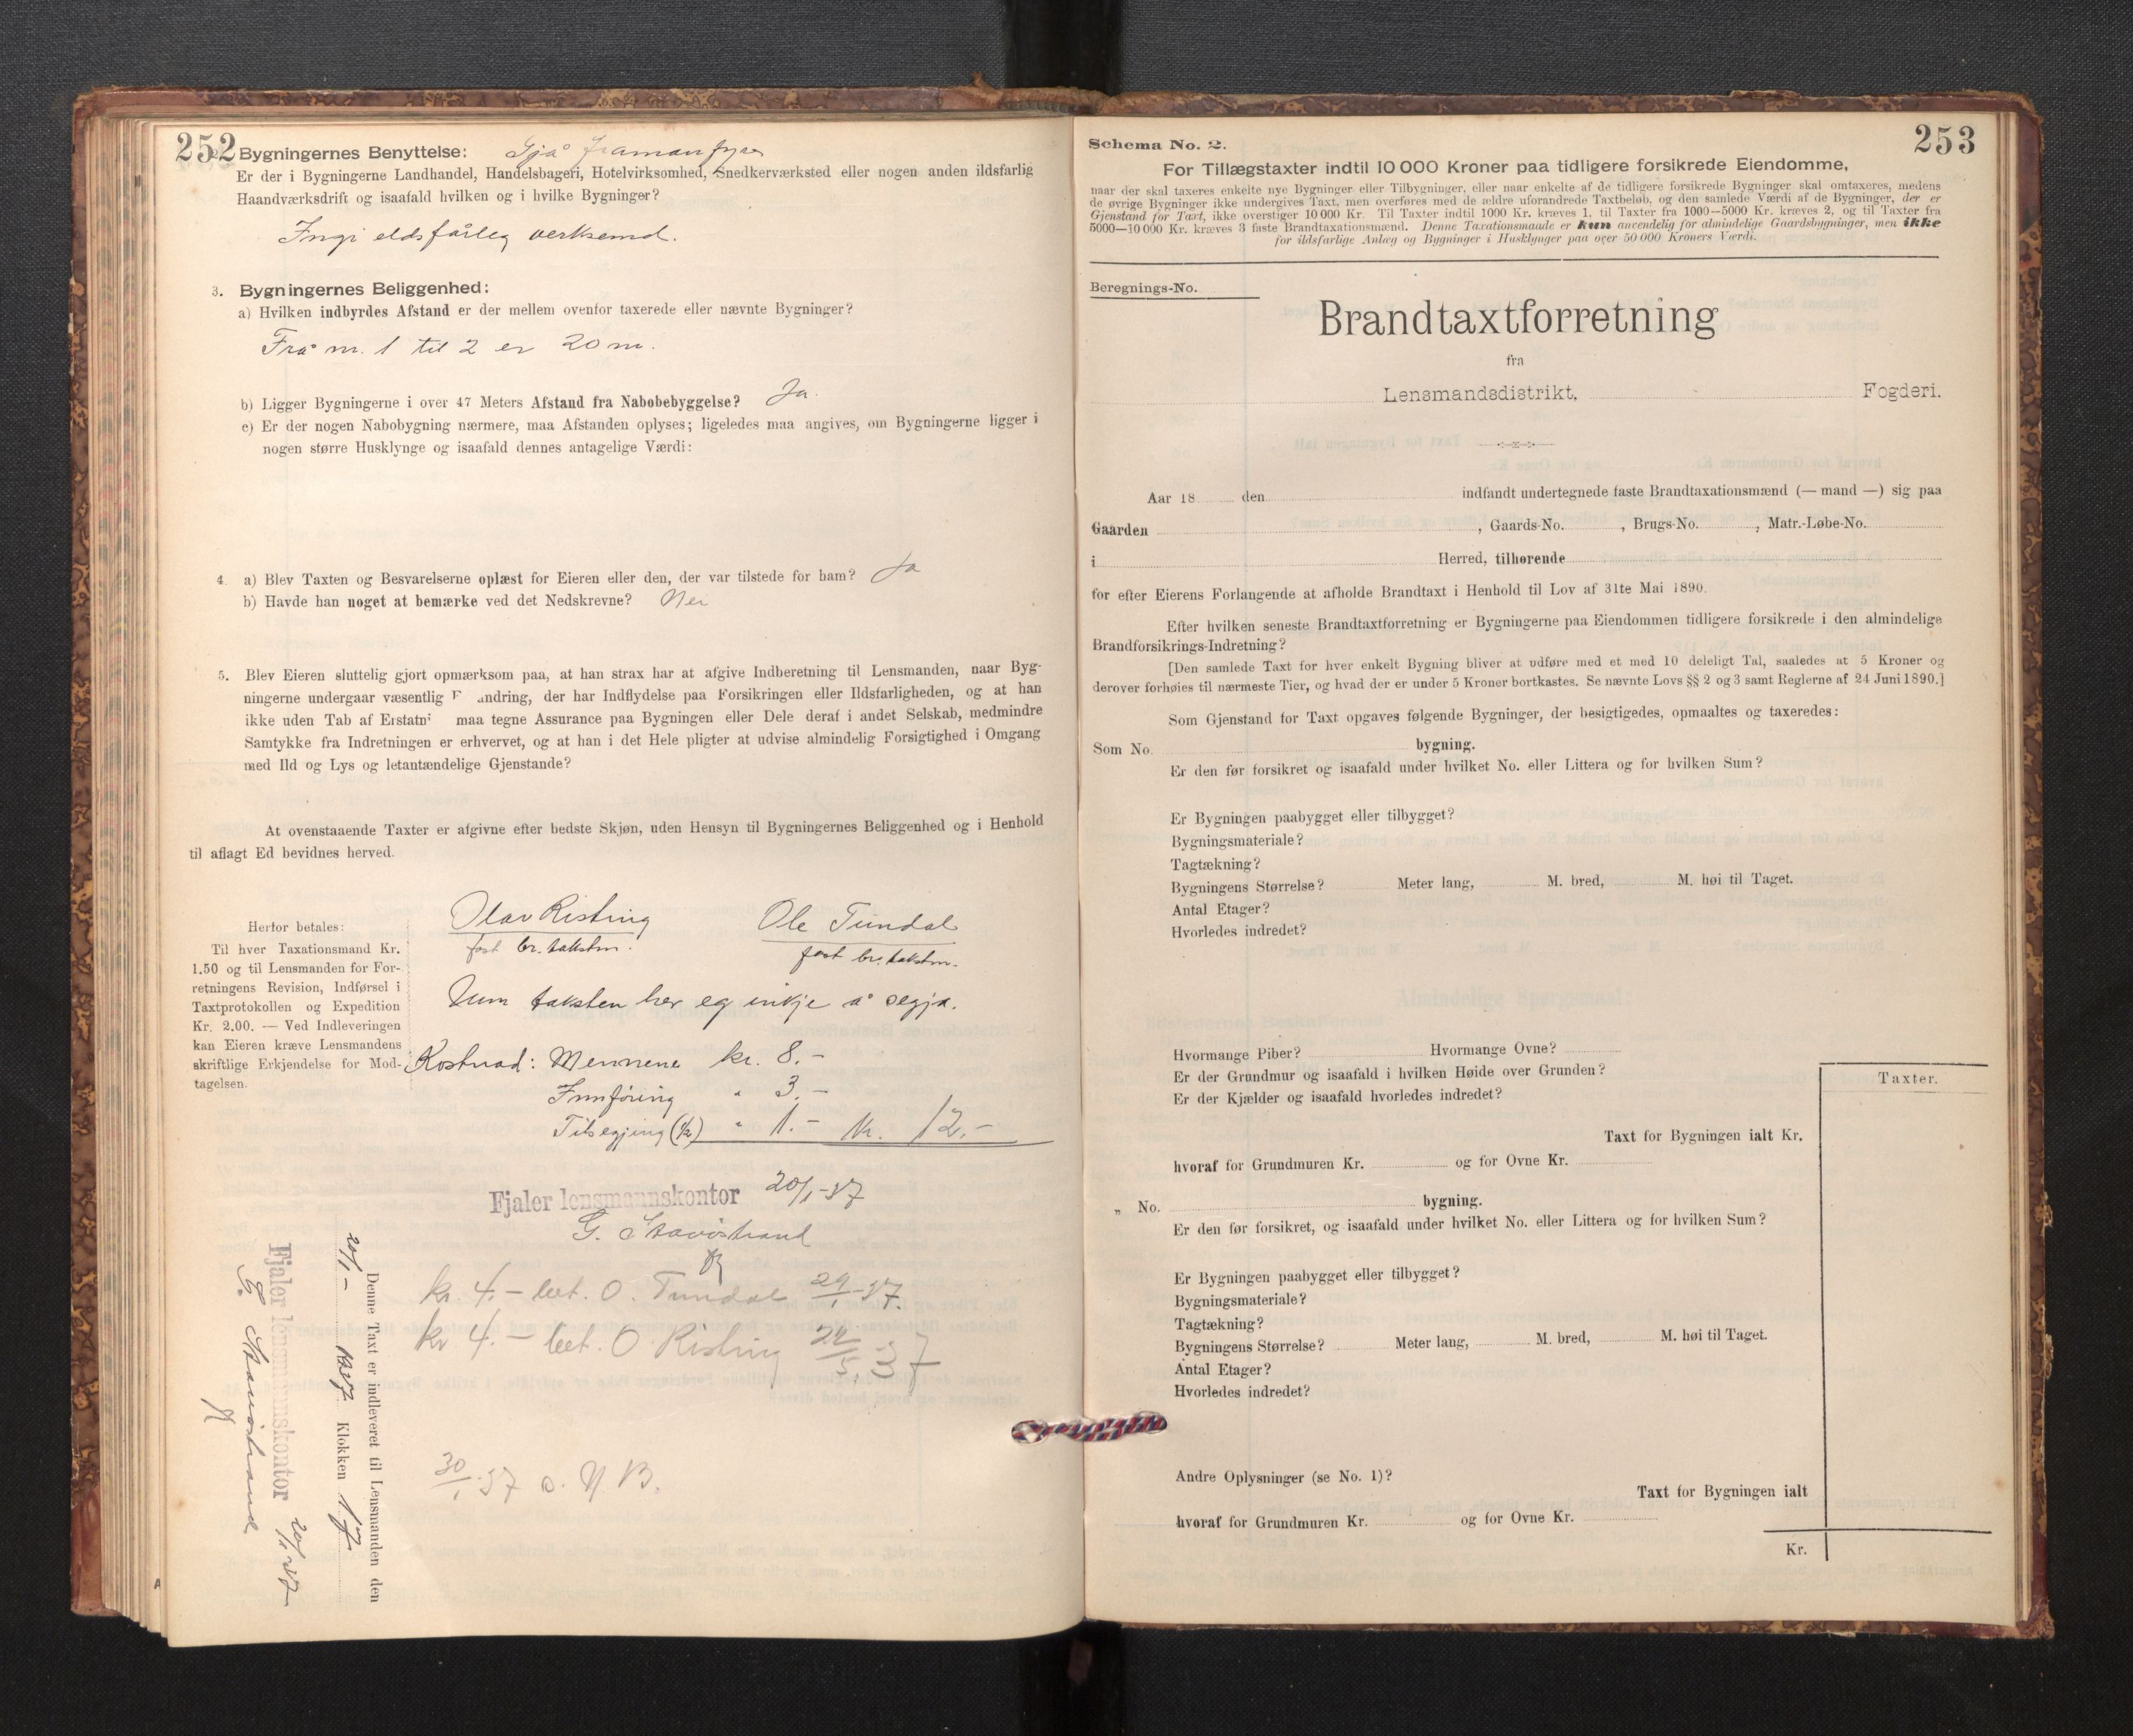 252
Bygningernes Benyttelse: Sjå framanfyre
Er der i Bygningerne Landhandel, Handelsbageri, Hotelvirksomhed, Snedkerværksted eller nogen anden ildsfarlig
Haandværksdrift og isaafald hvilken og i hvilke Bygninger?
Ingi eldsfårleg verksemd.
3. Bygningernes Beliggenhed:
a) Hvilken indbyrdes Afstand er der mellem ovenfor taxerede eller nævnte Bygninger?
Frå nr. 1 til 2 er 20 m.
b) Ligger Bygningerne i over 47 Meters Afstand fra Nabobebyggelse? Ja.
c) Er der nogen Nabobygning nærmere, maa Afstanden oplyses; ligeledes maa angives, om Bygningerne ligger i
nogen større Husklynge og isaafald dennes antagelige Værdi:
4. a) Blev Taxten og Besvarelserne oplæst for Eieren eller den, der var tilstede for ham? Ja
b) Havde han noget at bemærke ved det Nedskrevne? Nei
5. Blev Eieren sluttelig gjort opmærksom paa, at han strax har at afgive Indberetning til Lensmanden, naar Byg-
ningerne undergaar væsentlig F andring, der har Indflydelse paa Forsikringen eller Ildsfarligheden, og at han
ikke uden Tab af Erstatni maa tegne Assurance paa Bygningen eller Dele deraf i andet Selskab, medmindre
Samtykke fra Indretningen er erhvervet, og at han i det Hele pligter at udvise almindelig Forsigtighed i Omgang
med Ild og Lys og letantændelige Gjenstande?
At ovenstaaende Taxter er afgivne efter bedste Skjøn, uden Hensyn til Bygningernes Beliggenhed og i Henhold
til aflagt Ed bevidnes herved.
Olav Risting Ole Tundal
fast br. takstm. fast br. takstm.
Herfor betales:
Til hver Taxationsmand Kr.
1.50 og til Lensmanden for For-
retningens Revision, Indførsel i
Taxtprotokollen og Expedition
Kr. 2.00. — Ved Indleveringen
kan Eieren kræve Lensmandens
skriftlige Erkjendelse for Mod-
tagelsen.
Um taksten her eg inkje å segja.
Kostnad: Mennene kr. 8.-
Innføring " 3.-
Tilsegjing " 1.- kr. 12.-
Fjaler lensmannskontor 20/1-37
G. Stavøstrand
kr. 4.- bet. O. Tundal 29/1-37.
kr 4.- bet. O Risting 24/5-37
30/1-37 s. N. B.
Denne Taxt er indleveret til Lensmanden den
20/1- 1937 Klokken 17
Fjaler lensmannskontor 20/1-37
G. Stavøstrand
253
Schema No. 2.
For Tillægstaxter indtil 10 000 Kroner paa tidligere forsikrede Eiendomme,
naar der skal taxeres enkelte nye Bygninger eller Tilbygninger, eller naar enkelte af de tidligere forsikrede Bygninger skal omtaxeres, medens
de øvrige Bygninger ikke undergives Taxt, men overføres med de ældre uforandrede Taxtbeløb, og den samlede Værdi af de Bygninger, der er
Gjenstand for Taxt, ikke overstiger 10 000 Kr. Til Taxter indtil 1000 Kr. kræves 1, til Taxter fra 1000—5000 Kr. kræves 2, og til Taxter fra
5000—10 000 Kr. kræves 3 faste Brandtaxationsmænd. Denne Taxationsmaade er kun anvendelig for almindelige Gaardsbygninger, men ikke
for ildsfarlige Anlæg og Bygninger i Husklynger paa over 50 000 Kroners Værdi.
Beregnings-No.
Brandtaxtforretning
fra
Lensmandsdistrikt, Fogderi.
Aar 18 den indfandt undertegnede faste Brandtaxationsmænd (— mand —) sig paa
Gaarden , Gaards-No. , Brugs-No. , Matr.-Løbe-No.
i Herred, tilhørende
for efter Eierens Forlangende at afholde Brandtaxt i Henhold til Lov af 31te Mai 1890.
Efter hvilken seneste Brandtaxtforretning er Bygningerne paa Eiendommen tidligere forsikrede i den almindelige
Brandforsikrings-Indretning?
[Den samlede Taxt for hver enkelt Bygning bliver at udføre med et med 10 deleligt Tal, saaledes at 5 Kroner og
derover forhøies til nærmeste Tier, og hvad der er under 5 Kroner bortkastes. Se nævnte Lovs §§ 2 og 3 samt Reglerne af 24 Juni 1890.]
Som Gjenstand for Taxt opgaves følgende Bygninger, der besigtigedes, opmaaltes og taxeredes:
Som No. bygning.
Er den før forsikret og isaafald under hvilket No. eller Littera og for hvilken Sum?
Er Bygningen paabygget eller tilbygget?
Bygningsmateriale?
Tagtækning?
Bygningens Størrelse? Meter lang, M. bred, M. høi til Taget.
Antal Etager?
Hvorledes indredet?
Hvormange Piber? Hvormange Ovne?
Er der Grundmur og isaafald i hvilken Høide over Grunden?
Er der Kjælder og isaafald hvorledes indredet?
Taxter.
Taxt for Bygningen ialt Kr.
hvoraf for Grundmuren Kr. og for Ovne Kr.
„ No. bygning.
Er den før forsikret, og isaafald under hvilket No. eller Littera og for hvilken Sum?
Er Bygningen paabygget eller tilbygget?
Bygningsmateriale?
Tagtækning?
Bygningens Størrelse? Meter lang, M. bred, M. høi til Taget.
Antal Etager?
Hvorledes indredet?
Andre Oplysninger (se No. 1)?
Taxt for Bygningen ialt
hvoraf for Grundmuren Kr. og for Ovne Kr.
Kr.